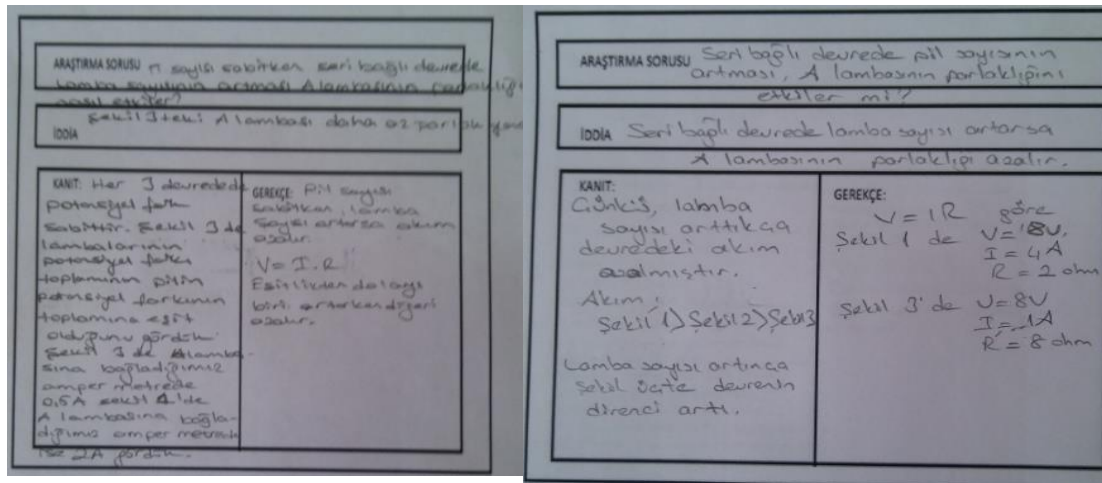 ARAŞTIRMA SORUSU n sayısı sabitken seri bağlı devrede
lamba sayısının artması A lambasının parlaklığı
nasıl etkiler?
İDDİA Şekil 3teki A lambası daha az parlak yanar
KANIT: Her 3 devredede
potansiyel fark
sabittir. Şekil 3 de
lambalarının
potansiyel farkı
toplamının pilin
potansiyel farkının
toplamına eşit
olduğunu gördük.
Şekil 3 de A lamba-
sına bağladığımız
amper metrede
0,5A şekil 1'de
A lambasına bağla-
dığımız amper metrede
ise 2A gördük.
GEREKÇE: Pil sayısı
sabitken, lamba
sayısı artarsa akım
azalır.
V = I.R
Eşitlikten dolayı
biri artarken diğeri
azalır.
ARAŞTIRMA SORUSU Seri bağlı devrede pil sayısının
artması, A lambasının parlaklığını
etkiler mi?
İDDİA Seri bağlı devrede lamba sayısı artarsa
A lambasının parlaklığı azalır.
KANIT:
Çünkü, lamba
sayısı arttıkça
devredeki akım
azalmıştır.
Akım:
Şekil 1) Şekil 2) Şekil 3
Lamba sayısı artınca
Şekil üçte devrenin
direnci arttı.
GEREKÇE:
V = IR göre
Şekil 1 de V = 8V.
I = 4A
R = 2 ohm
Şekil 3' de V = 8V
I = 1A
R = 8 ohm